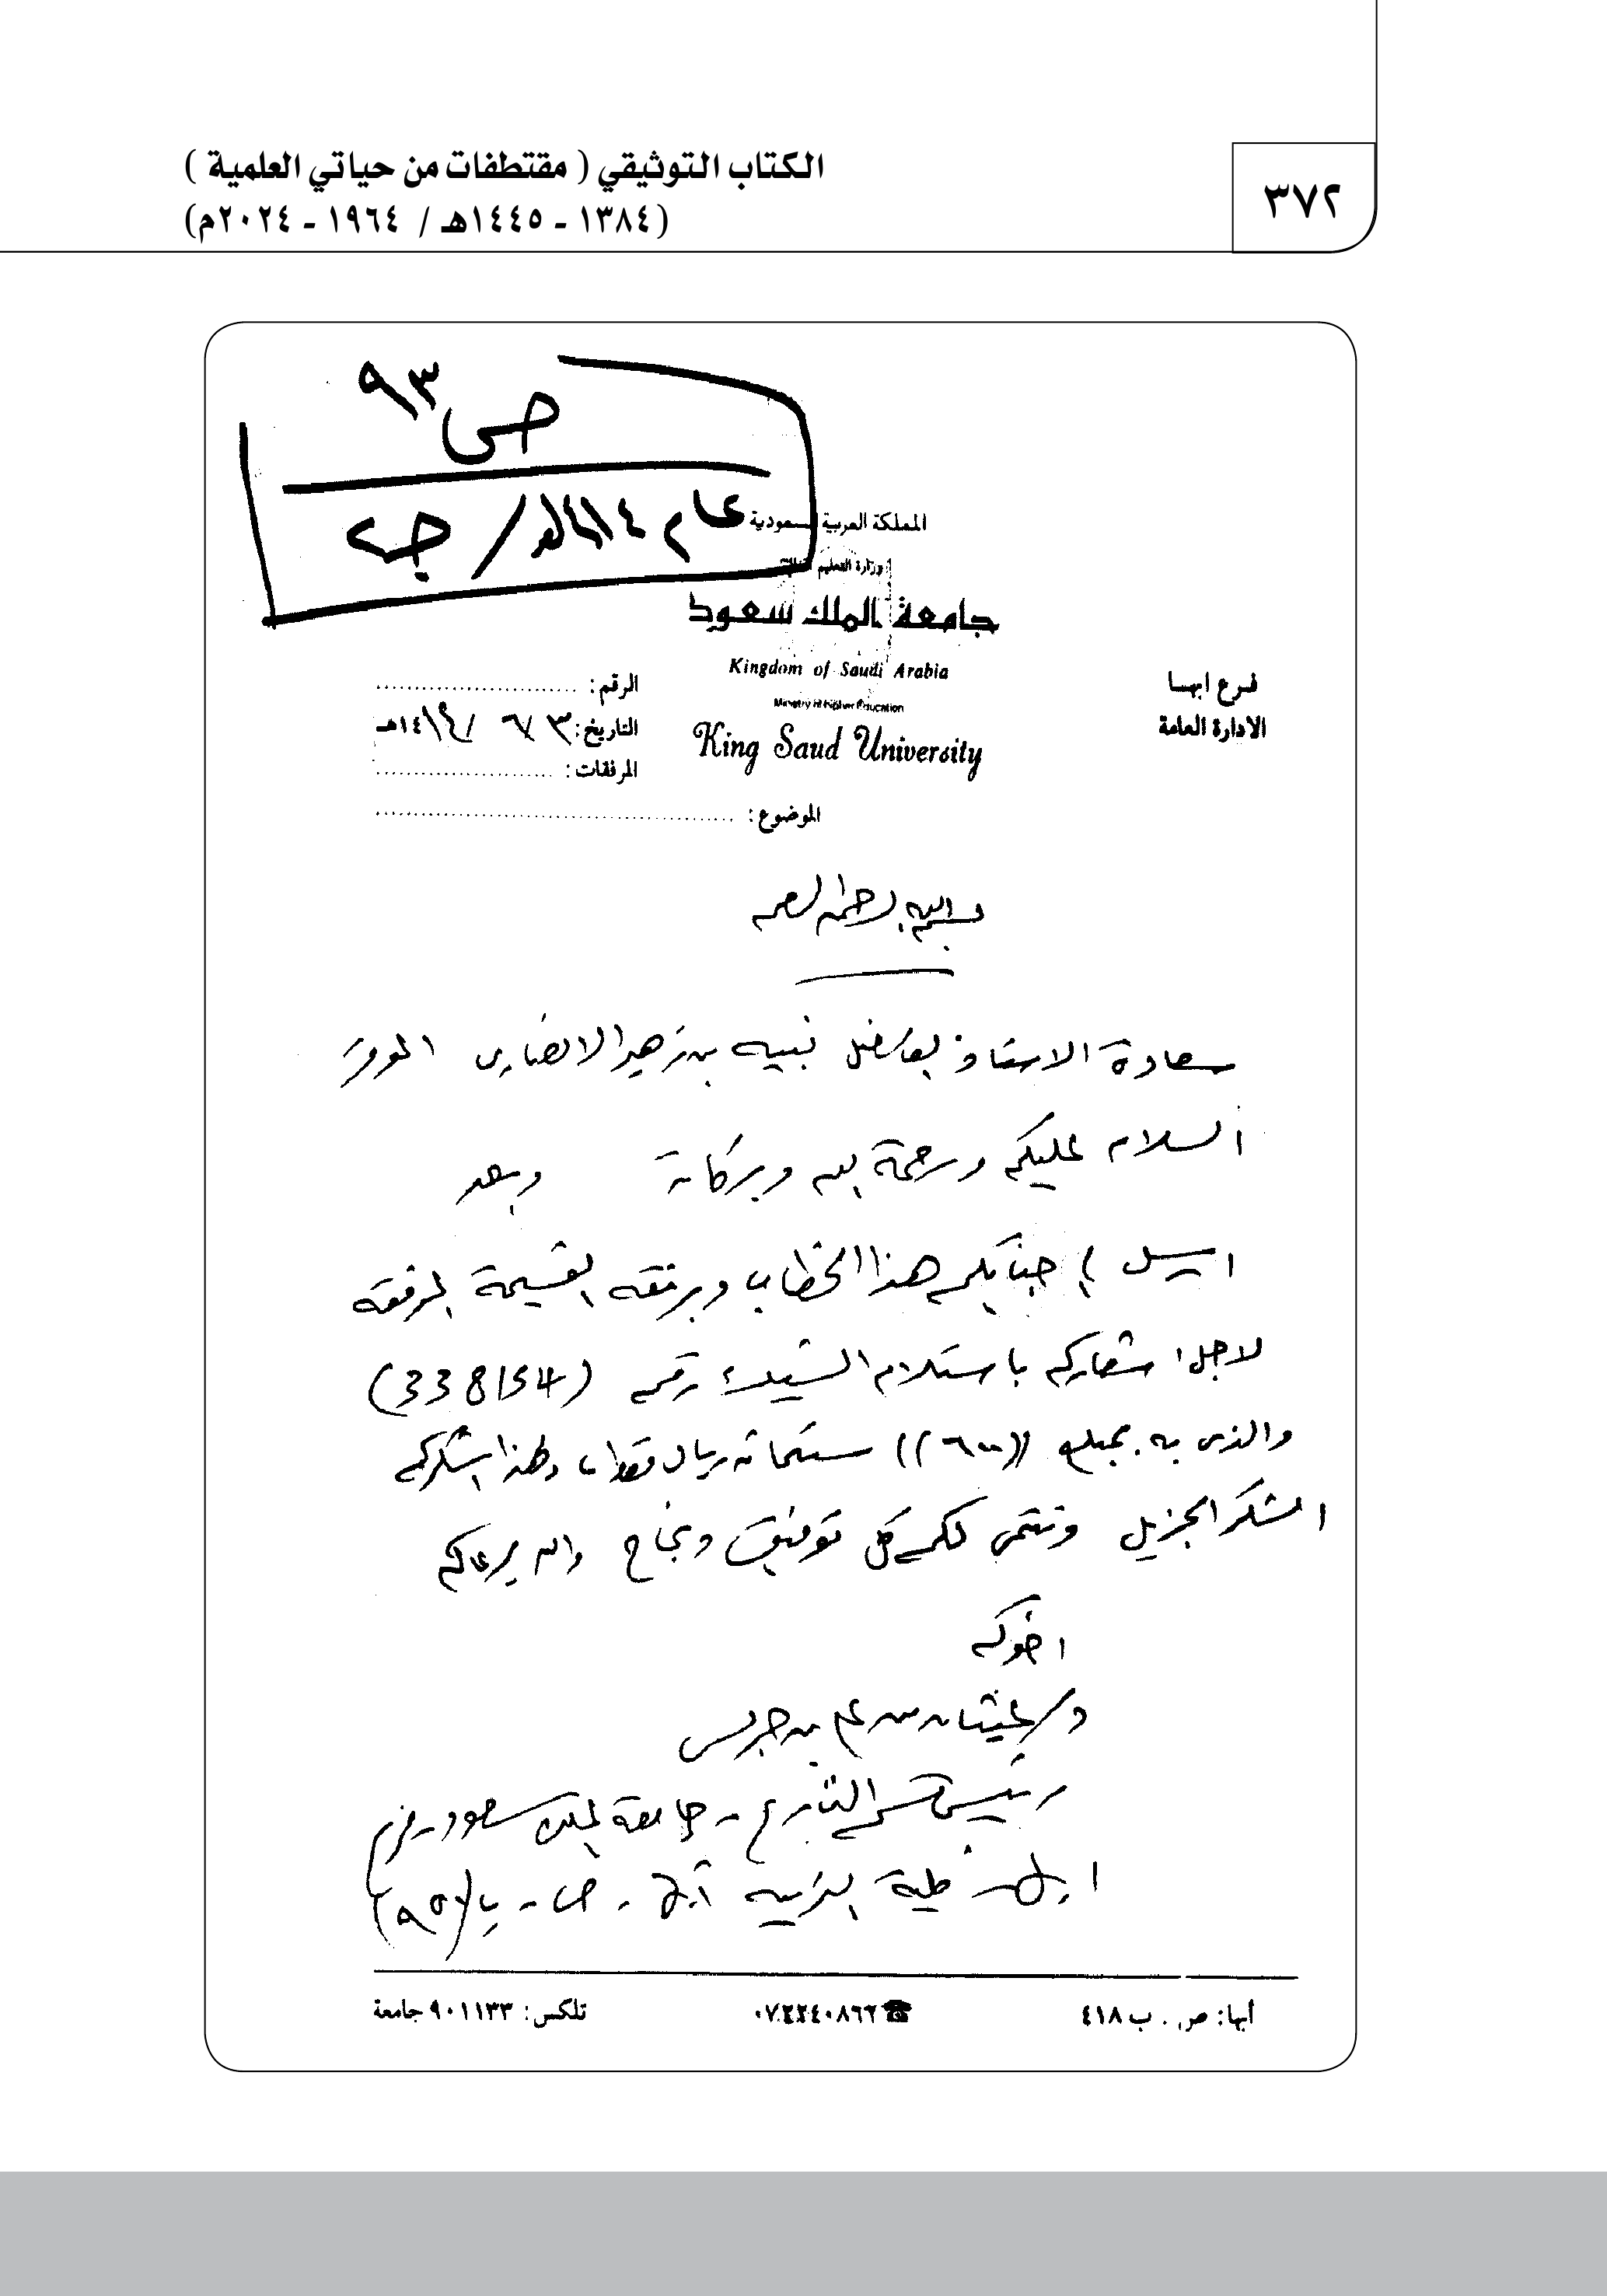 ٣٧٢
الكتاب التوثيقي ( مقتطفات من حياتي العلمية )
(١٣٨٤ - ١٤٤٥هـ / ١٩٦٤ - ٢٠٢٤م)
ص ٩٣
عام ١٤١٤هـ / ج٢
المملكة العربية السعودية
وزارة التعليم العالي
جامعة الملك سعود
Kingdom of Saudi Arabia
Ministry of Higher Education
King Saud University
فرع ابها
الادارة العامة
الرقم :
التاريخ : ٣ / ٦ / ١٤١٤هـ
المرفقات :
الموضوع :
بسم الله الرحمن الرحيم
سعادة الاستاذ الفاضل نبيه بن زهير الانصاري الموقر
السلام عليكم ورحمة الله وبركاته وبعد
ارسل الى جنابكم هذا الخطاب وبرفقه القسيمة المرفقه
لاجل اشعاركم باستلام الشيك رقم (338154)
والذى به بمبلغ ((٦٠٠)) ستمائة ريال فقط لهذا اشكركم
الشكر الجزيل ونتمى لكم كل توفيق ونجاح والله يرعاكم
اخوكم
د/ غيثان بن علي بن جريس
رئيس قسم التاريخ - جامعة الملك سعود - فرع
ابها - كلية التربية أبها - ص - ب (٩٥٧)
أبها : ص . ب ٤١٨
☎ ٠٧٢٢٤٠٨٦٢
تلكس : ٩٠١١٣٣ جامعة